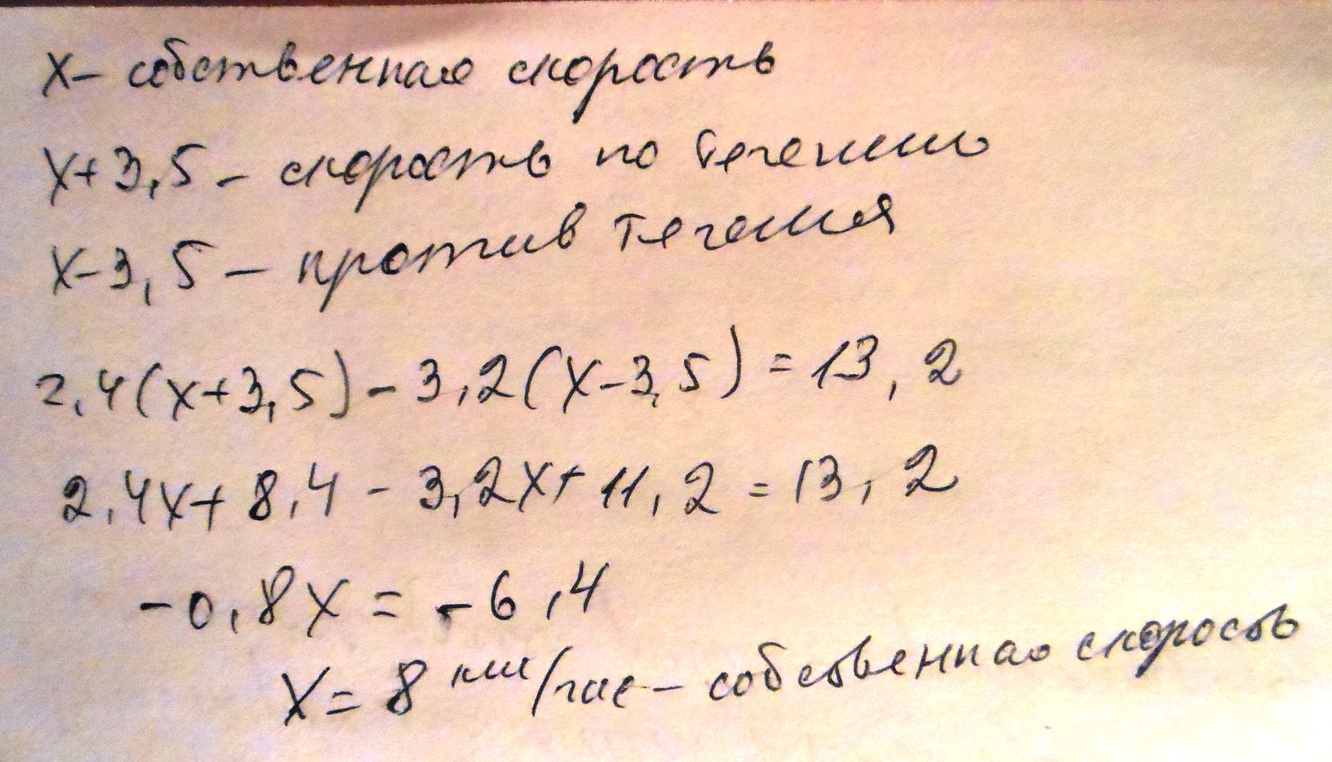 x – собственная скорость
x+3,5 – скорость по течению
x-3,5 – против течения
2,4(x+3,5) - 3,2(x-3,5) = 13,2
2,4x+8,4 - 3,2x+11,2 = 13,2
-0,8x = -6,4
x = 8 км/час – собственная скорость